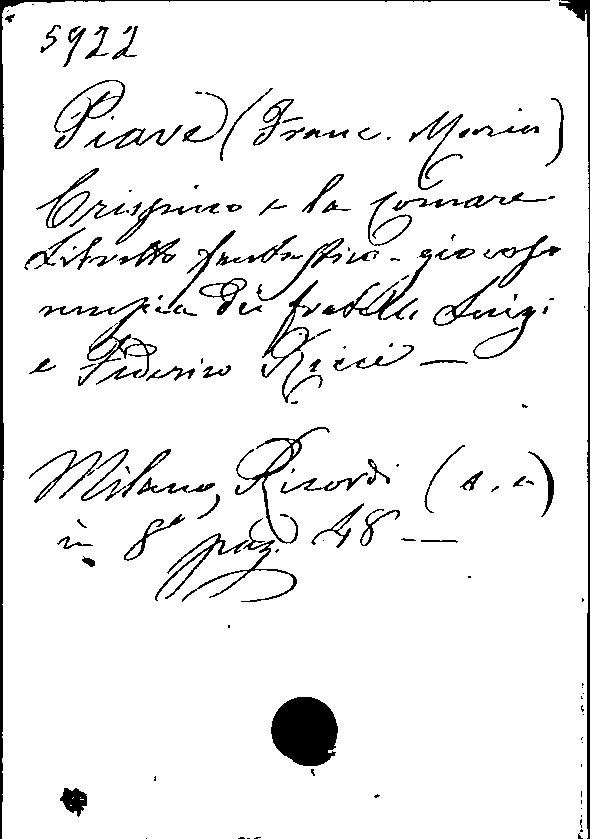 5922
Piave (Franc. Maria)
Crispino e la comare
Libretto fantastico-giocoso
musica dei fratelli Luigi
e Federico Ricci —
Milano, Ricordi (s. a.)
in 8° pag. 48 —